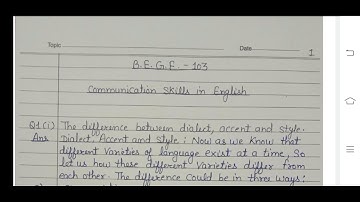 Topic
Date
1
B.E.G.E. - 103
Communication Skills in English
Q1(i) The difference between dialect, accent and style.
Ans Dialect, Accent and Style : Now as we know that
different varieties of language exist at a time, So
let us how these different Varieties differ from
each other. The difference could be in three ways: